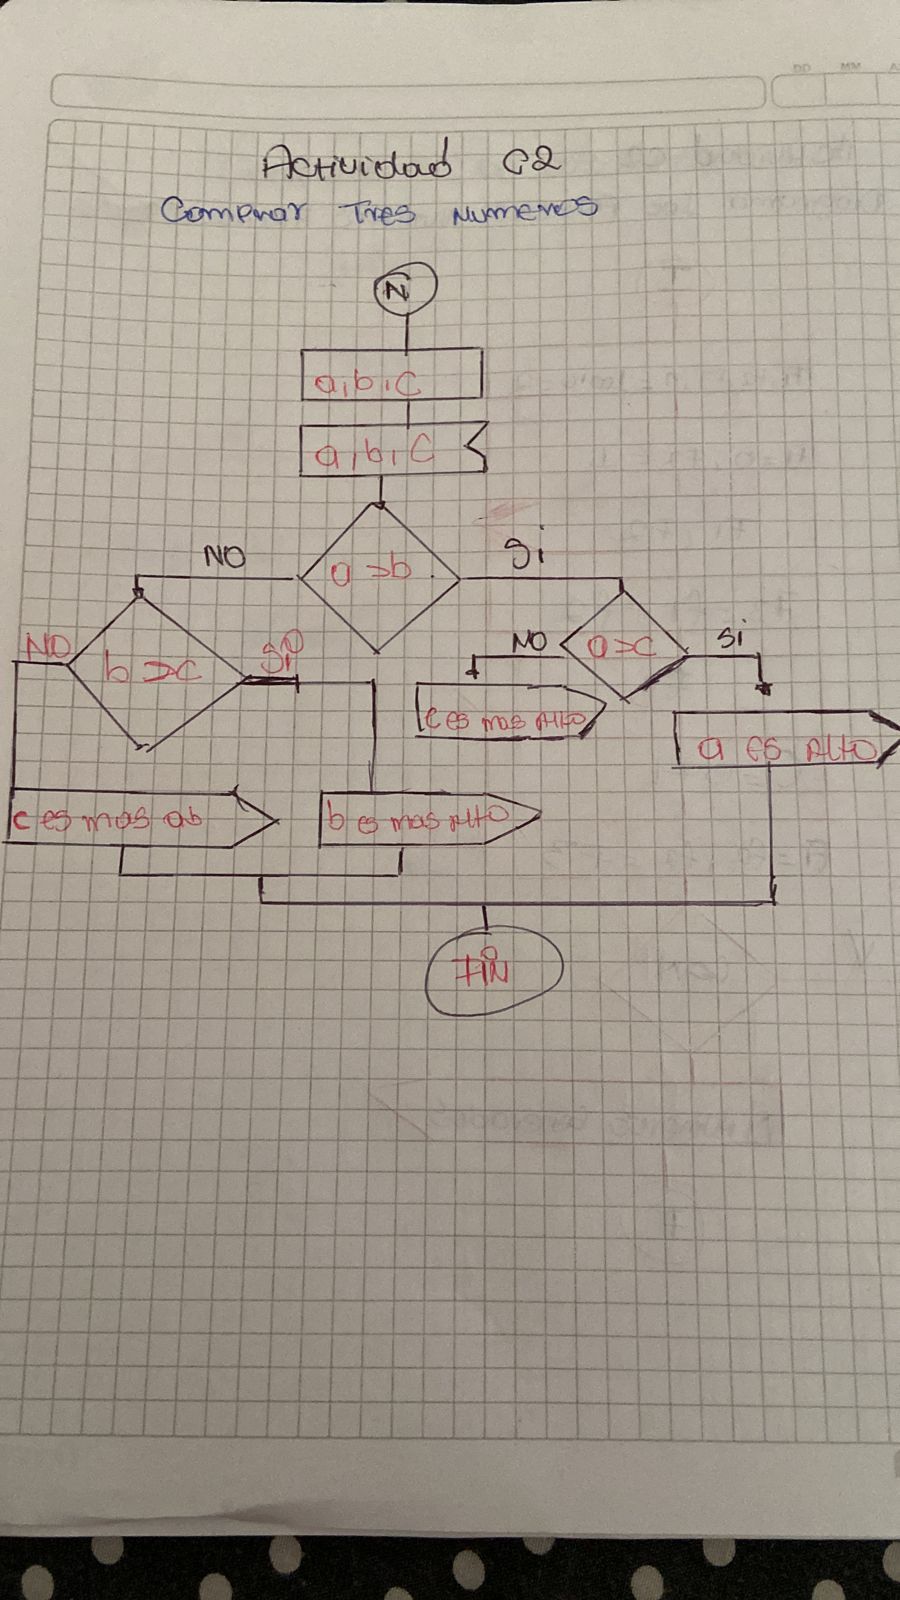 Actividad C2
Comparar Tres Numeros
N
a, b, C
a, b, C
NO
a >b
Si
NO
b >c
Si
NO
a>c
Si
c es mas Alto
a es Alto
c es mas ab
b es mas Alto
FIN